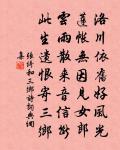 洛川依舊好風光
蓮帳無因見女郎
雲雨散來音信斷
此生遺恨寄三鄉
張綺和三鄉詩詞典網
集